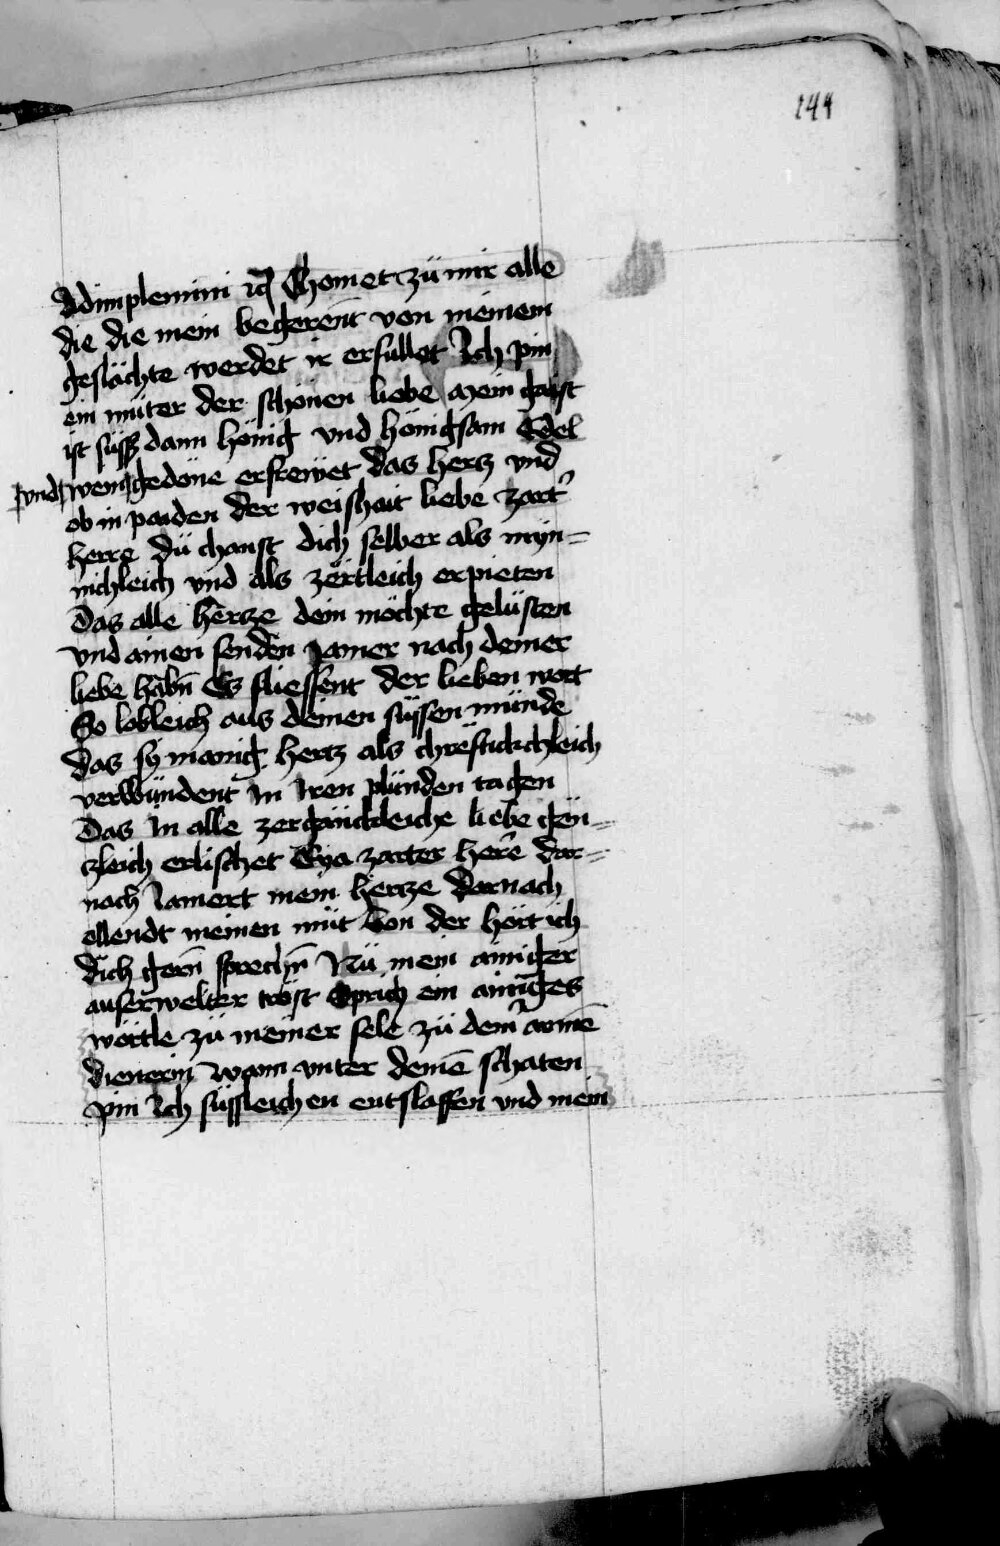 144
Adimplemini ⁊c̃ Chomet zü mir alle
die die mein begerent von meinem
geslächte werdet ir erfullet Ich pin
ein müter der schonen liebe mein gaist
ist süss dann hönig vnd hönigsam Edel
vnd wein gedöne erfrewet das hertz vnd
ob in paiden der weishait liebe zart̃
herre dü chanst dich selber als myn=
nichleich vnd als zërtleich erpieten
Das alle hertze dein möchte gelüsten
vnd ainen senden Jamer nach deiner
liebe habñ Es fliessent der lieben wort
So lobleich aus deinen süssen münde
das sy manig hertz als chreftickchleich
verwündent In Iren plünden tagen
Das In alle zergänckleiche liebe gën=
czleich erlischet Eya zarter herre dar=
nach Jamert mein hertze darnach
ellendt meinen müt von der hört ich
dich gerñ sprechñ Nü mein ainiger
auserwelter tröst Sprich ein ainiges
wörtle zü meiner sele zü dem̃ armē
dienerin wann vnter deinē schaten
pin Ich süssleichen entslaffen vnd mein